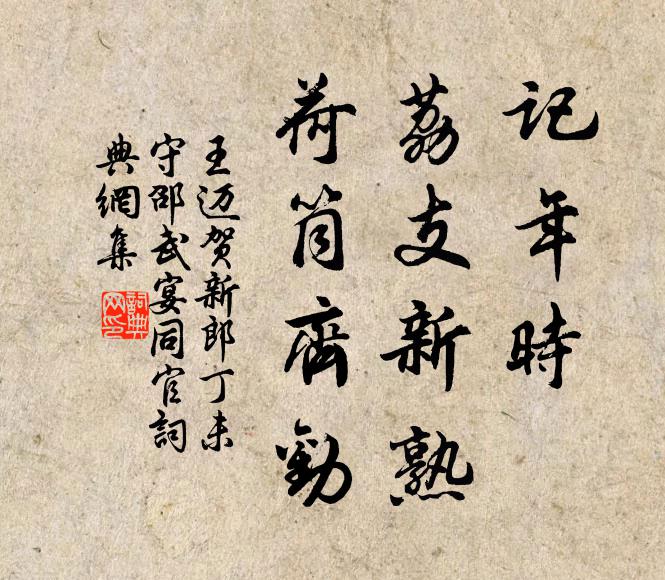 記年時
荔支新熟
荷筒齊勸
王迈贺新郎丁未
守邵武宴同官詞
典網集
詞典網印